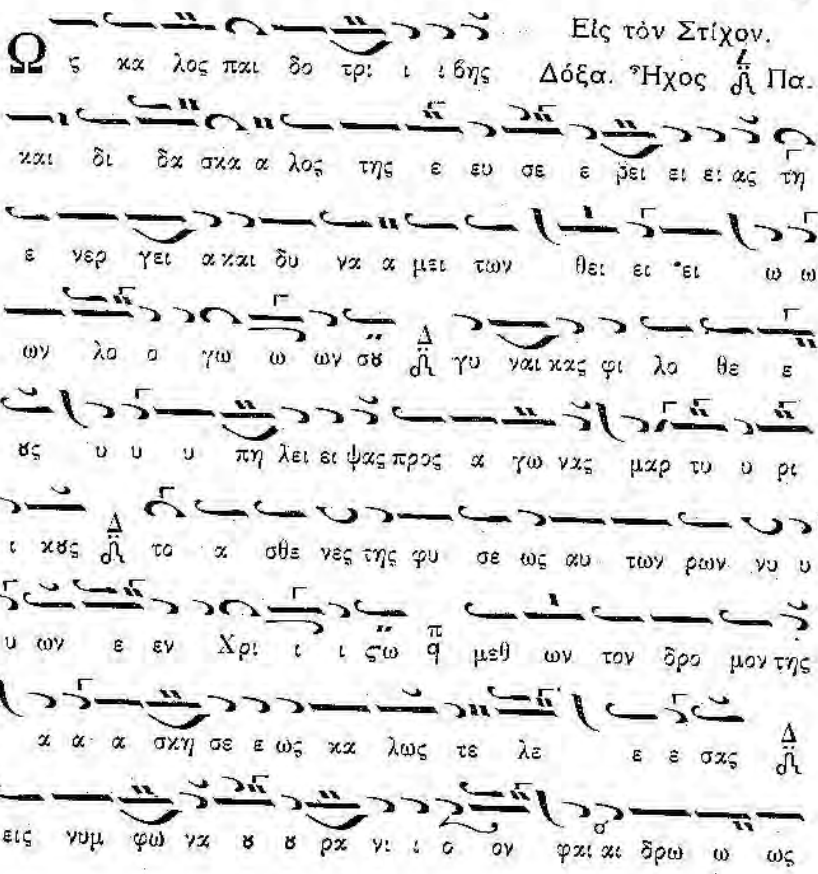 Εἰς τὸν Στίχον.
Ως κα λος παι δο τρι ι ι βης Δόξα. Ἦχος Πα.
και δι δα σκα α λος της ε ευ σε ε βει ει ει ας τη
ε νερ γει α και δυ να α μει των θει ει ει ω ω
ων λο ο γω ω ων σȣ Δ γυ ναι κας φι λο θε ε
ȣς υ υ υ πη λει ει ψας προς α γω νας μαρ τυ υ ρι
ι κȣς Δ το α σθε νες της φυ σε ως αυ των ρων νυ υ
υ ων ε εν Χρι ι ι ϛω π q μεθ ων τον δρο μον της
α α α σκη σε ε ως κα λως τε λε ε ε σας Δ
εις νυμ φω να ȣ ȣ ρα νι ι ο ον φαι αι δρω ω ως